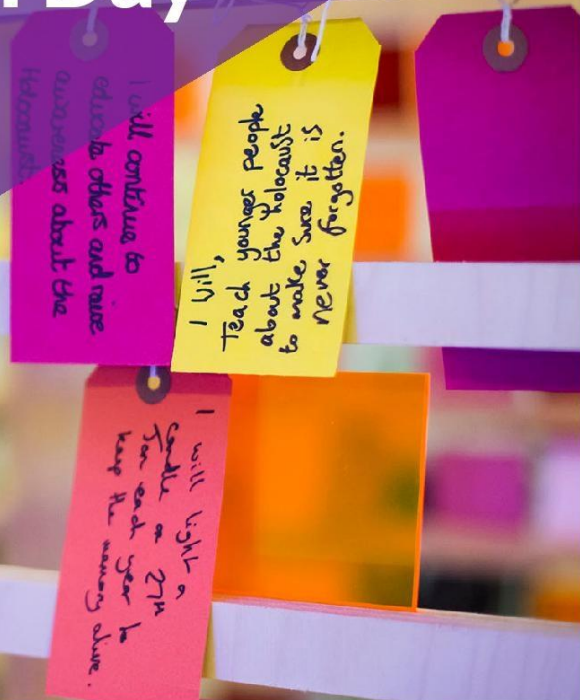 Day
I will continue to
educate others and raise
awareness about the
Holocaust
I Will,
Teach younger people
about the Holocaust
to make sure it is
never forgotten.
I will light a
candle on 27th
Jan each year to
keep the memory alive.